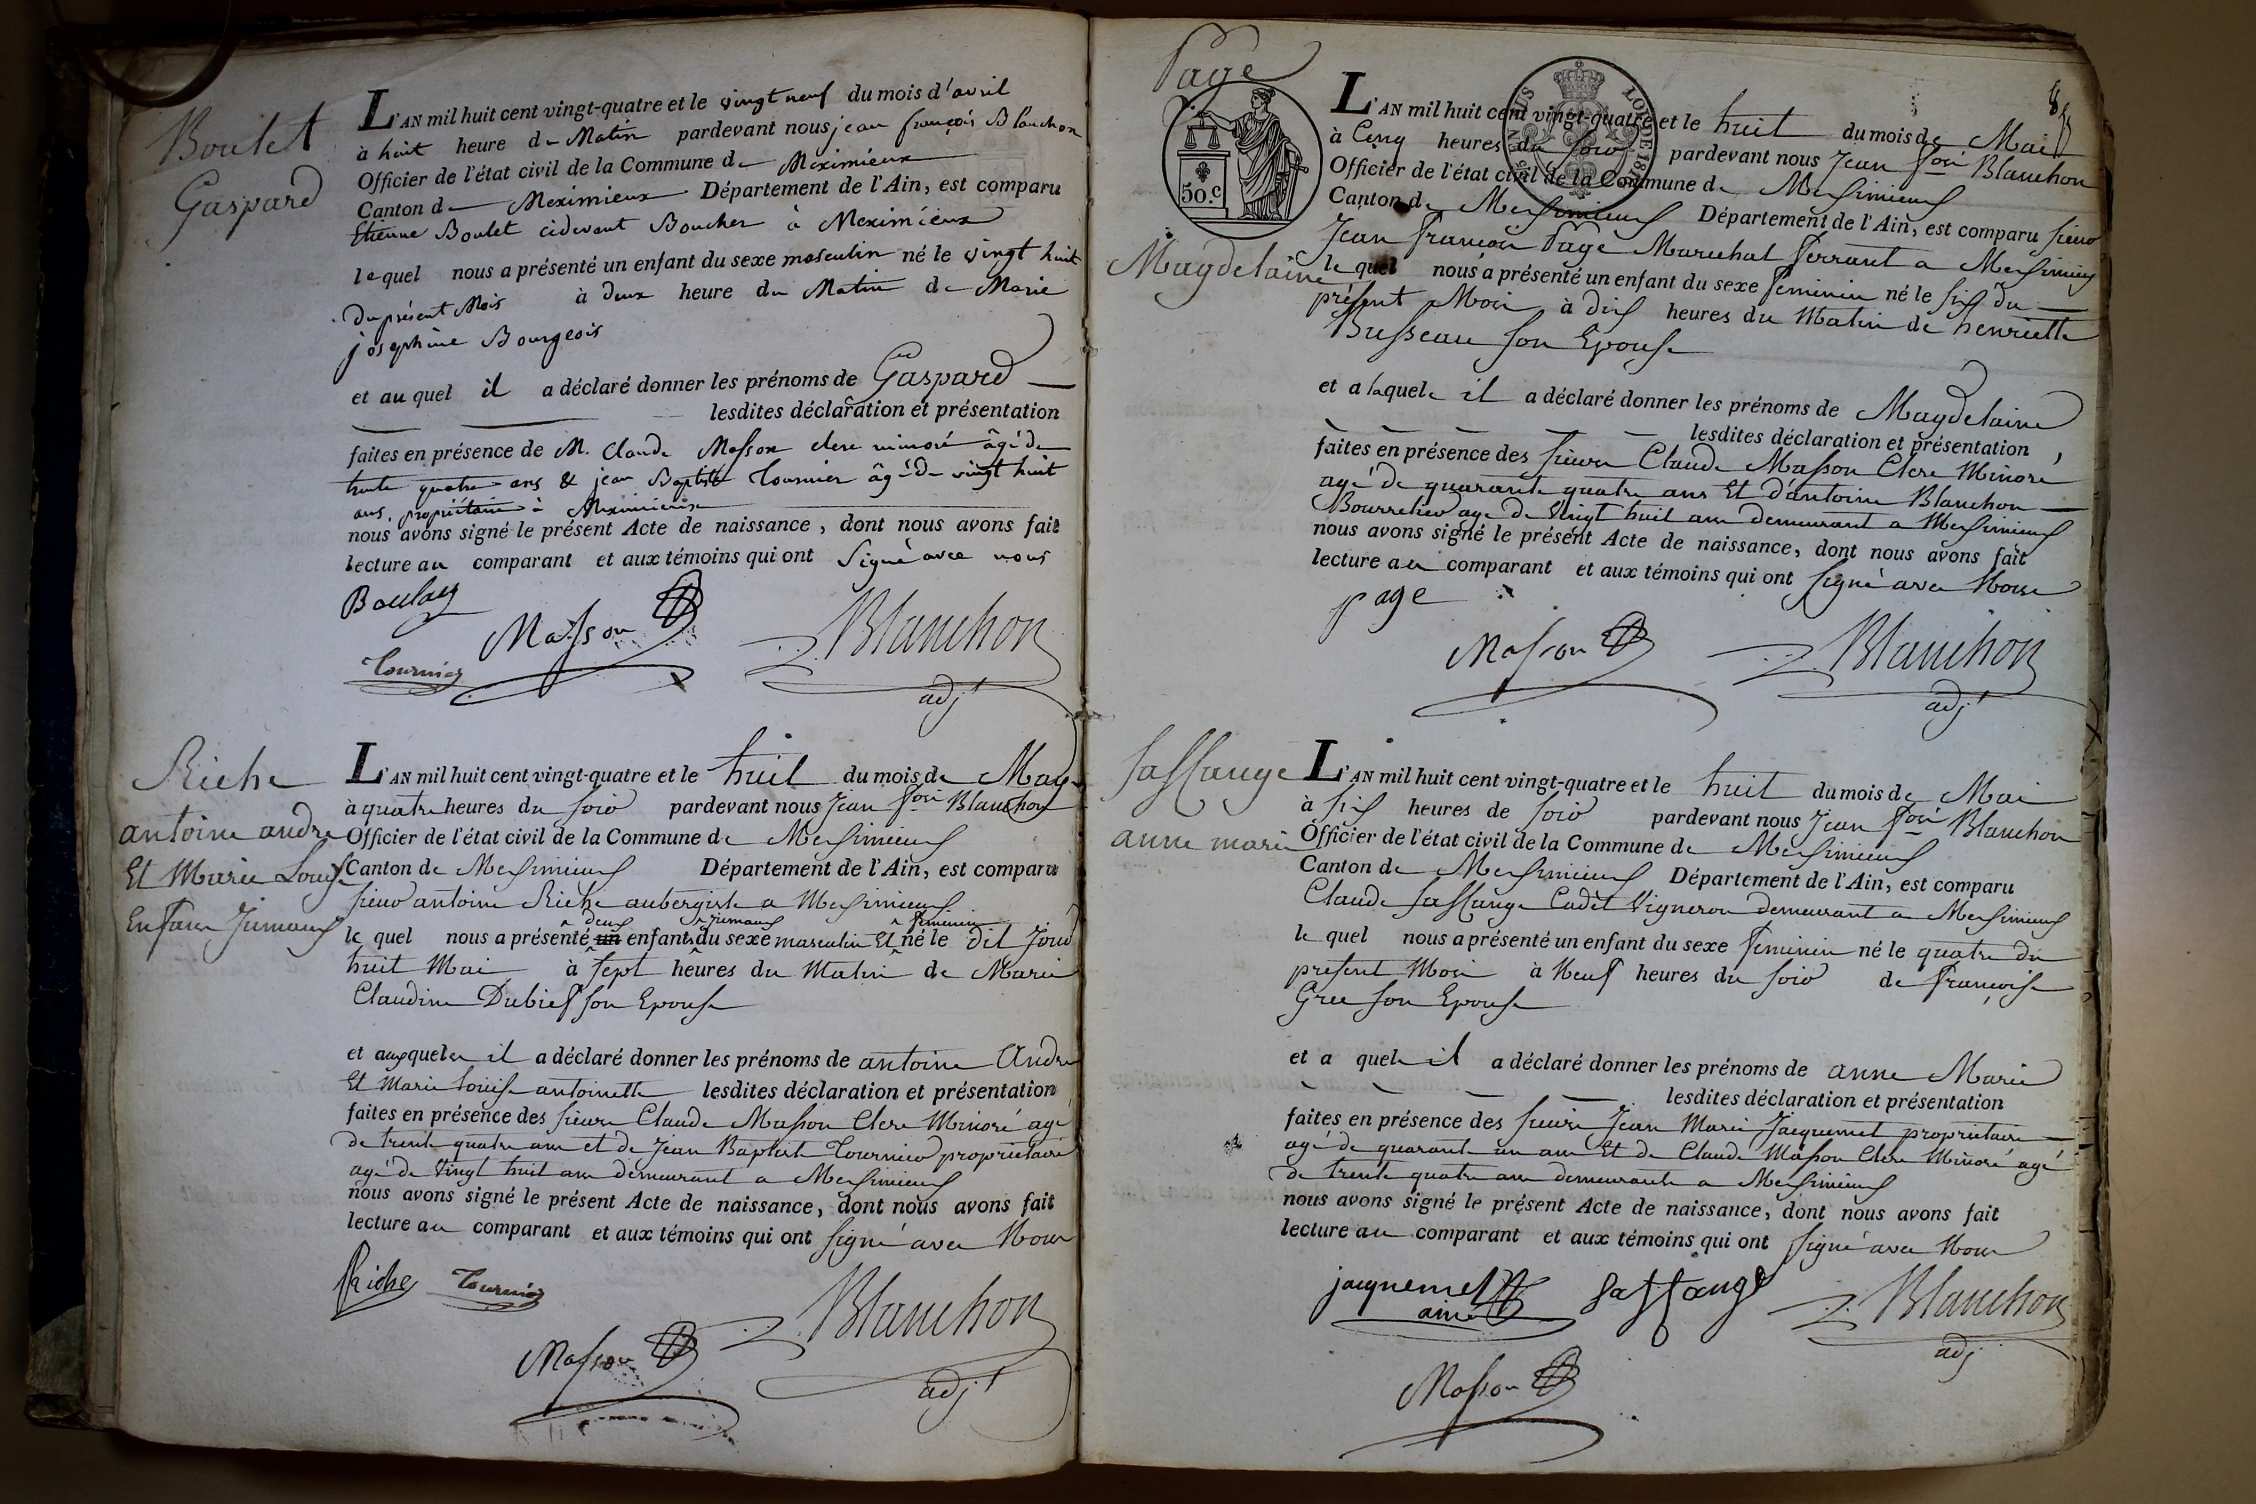 Boulet
Gaspard
L'AN mil huit cent vingt-quatre et le vingt neuf du mois d'avril
à huit heure du Matin pardevant nous jean françois Blanchon
Officier de l'état civil de la Commune de Meximieux
Canton de Meximieux Département de l'Ain, est comparu
Etienne Boulet cidevant Boucher à Meximieux
lequel nous a présenté un enfant du sexe masculin né le vingt huit
du présent Mois à deux heure du Matin de Marie
joséphine Bourgeois
et au quel il a déclaré donner les prénoms de Gaspard
lesdites déclaration et présentation
faites en présence de M. Claude Masson clerc minoré âgé de
trente quatre ans & jean Baptiste Tournier âgé de vingt huit
ans, propriétaire à Meximieux
nous avons signé le présent Acte de naissance, dont nous avons fait
lecture au comparant et aux témoins qui ont Signé avec nous
Boulay
Masson
Blanchon
Tournier
adjt
Riche
antoine andre
Et Marie Louise
Enfans Jumeaux
L'AN mil huit cent vingt-quatre et le huit du mois de May
à quatre heures du soir pardevant nous Jean fois Blanchon
Officier de l'état civil de la Commune de Meximieux
Canton de Meximieux Département de l'Ain, est comparu
sieur antoine Riche aubergiste a Meximieux
deux jumeaux feminin
le quel nous a présenté un enfants du sexe masculin Et né le dit jour
huit Mai à sept heures du Matin de Marie
Claudine Dubief son Epouse
et auxquels il a déclaré donner les prénoms de antoine Andre
Et Marie Louise antoinette lesdites déclaration et présentation
faites en présence des sieurs Claude Masson Clerc Minoré agé
de trente quatre ans et de Jean Baptiste Tournier propriétaire
agé de vingt huit ans demeurant a Meximieux
nous avons signé le présent Acte de naissance, dont nous avons fait
lecture au comparant et aux témoins qui ont signé avec Nous
Riche
Tournier
Blanchon
Masson
adjt
Page
Magdelaine
50.c
LOI DE 1816
L'AN mil huit cent vingt-quatre et le huit du mois de Mai
à Cinq heures du soir pardevant nous Jean fois Blanchon
Officier de l'état civil de la Commune de Meximieux
Canton de Meximieux Département de l'Ain, est comparu sieur
Jean françois Page Marechal ferrant a Meximieux
le quel nous a présenté un enfant du sexe feminin né le six du
présent Mois à dix heures du Matin de henriette
Busseau son Epouse
et a laquele il a déclaré donner les prénoms de Magdelaine
lesdites déclaration et présentation
faites en présence des sieurs Claude Masson Clerc Minoré
agé de quarante quatre ans Et d'antoine Blanchon
Bourrelier agé de vingt huit ans demeurant a Meximieux
nous avons signé le présent Acte de naissance, dont nous avons fait
lecture au comparant et aux témoins qui ont signé avec Nous
page
Masson
Blanchon
adjt
Sassange
anne marie
L'AN mil huit cent vingt-quatre et le huit du mois de Mai
à six heures de soir pardevant nous Jean fois Blanchon
Officier de l'état civil de la Commune de Meximieux
Canton de Meximieux Département de l'Ain, est comparu
Claude Sassange Cadet Vigneron demeurant a Meximieux
le quel nous a présenté un enfant du sexe feminin né le quatre du
présent Mois à Neuf heures du soir de françoise
Gree son Epouse
et a quele il a déclaré donner les prénoms de anne Marie
lesdites déclaration et présentation
faites en présence des sieurs Jean Marie Jacquemet propriétaire
agé de quarante un ans Et de Claude Masson Clerc Minoré agé
de trente quatre ans demeurants a Meximieux
nous avons signé le présent Acte de naissance, dont nous avons fait
lecture au comparant et aux témoins qui ont signé avec Nous
jacquemet
ainé
Sassange
Blanchon
adj
Masson